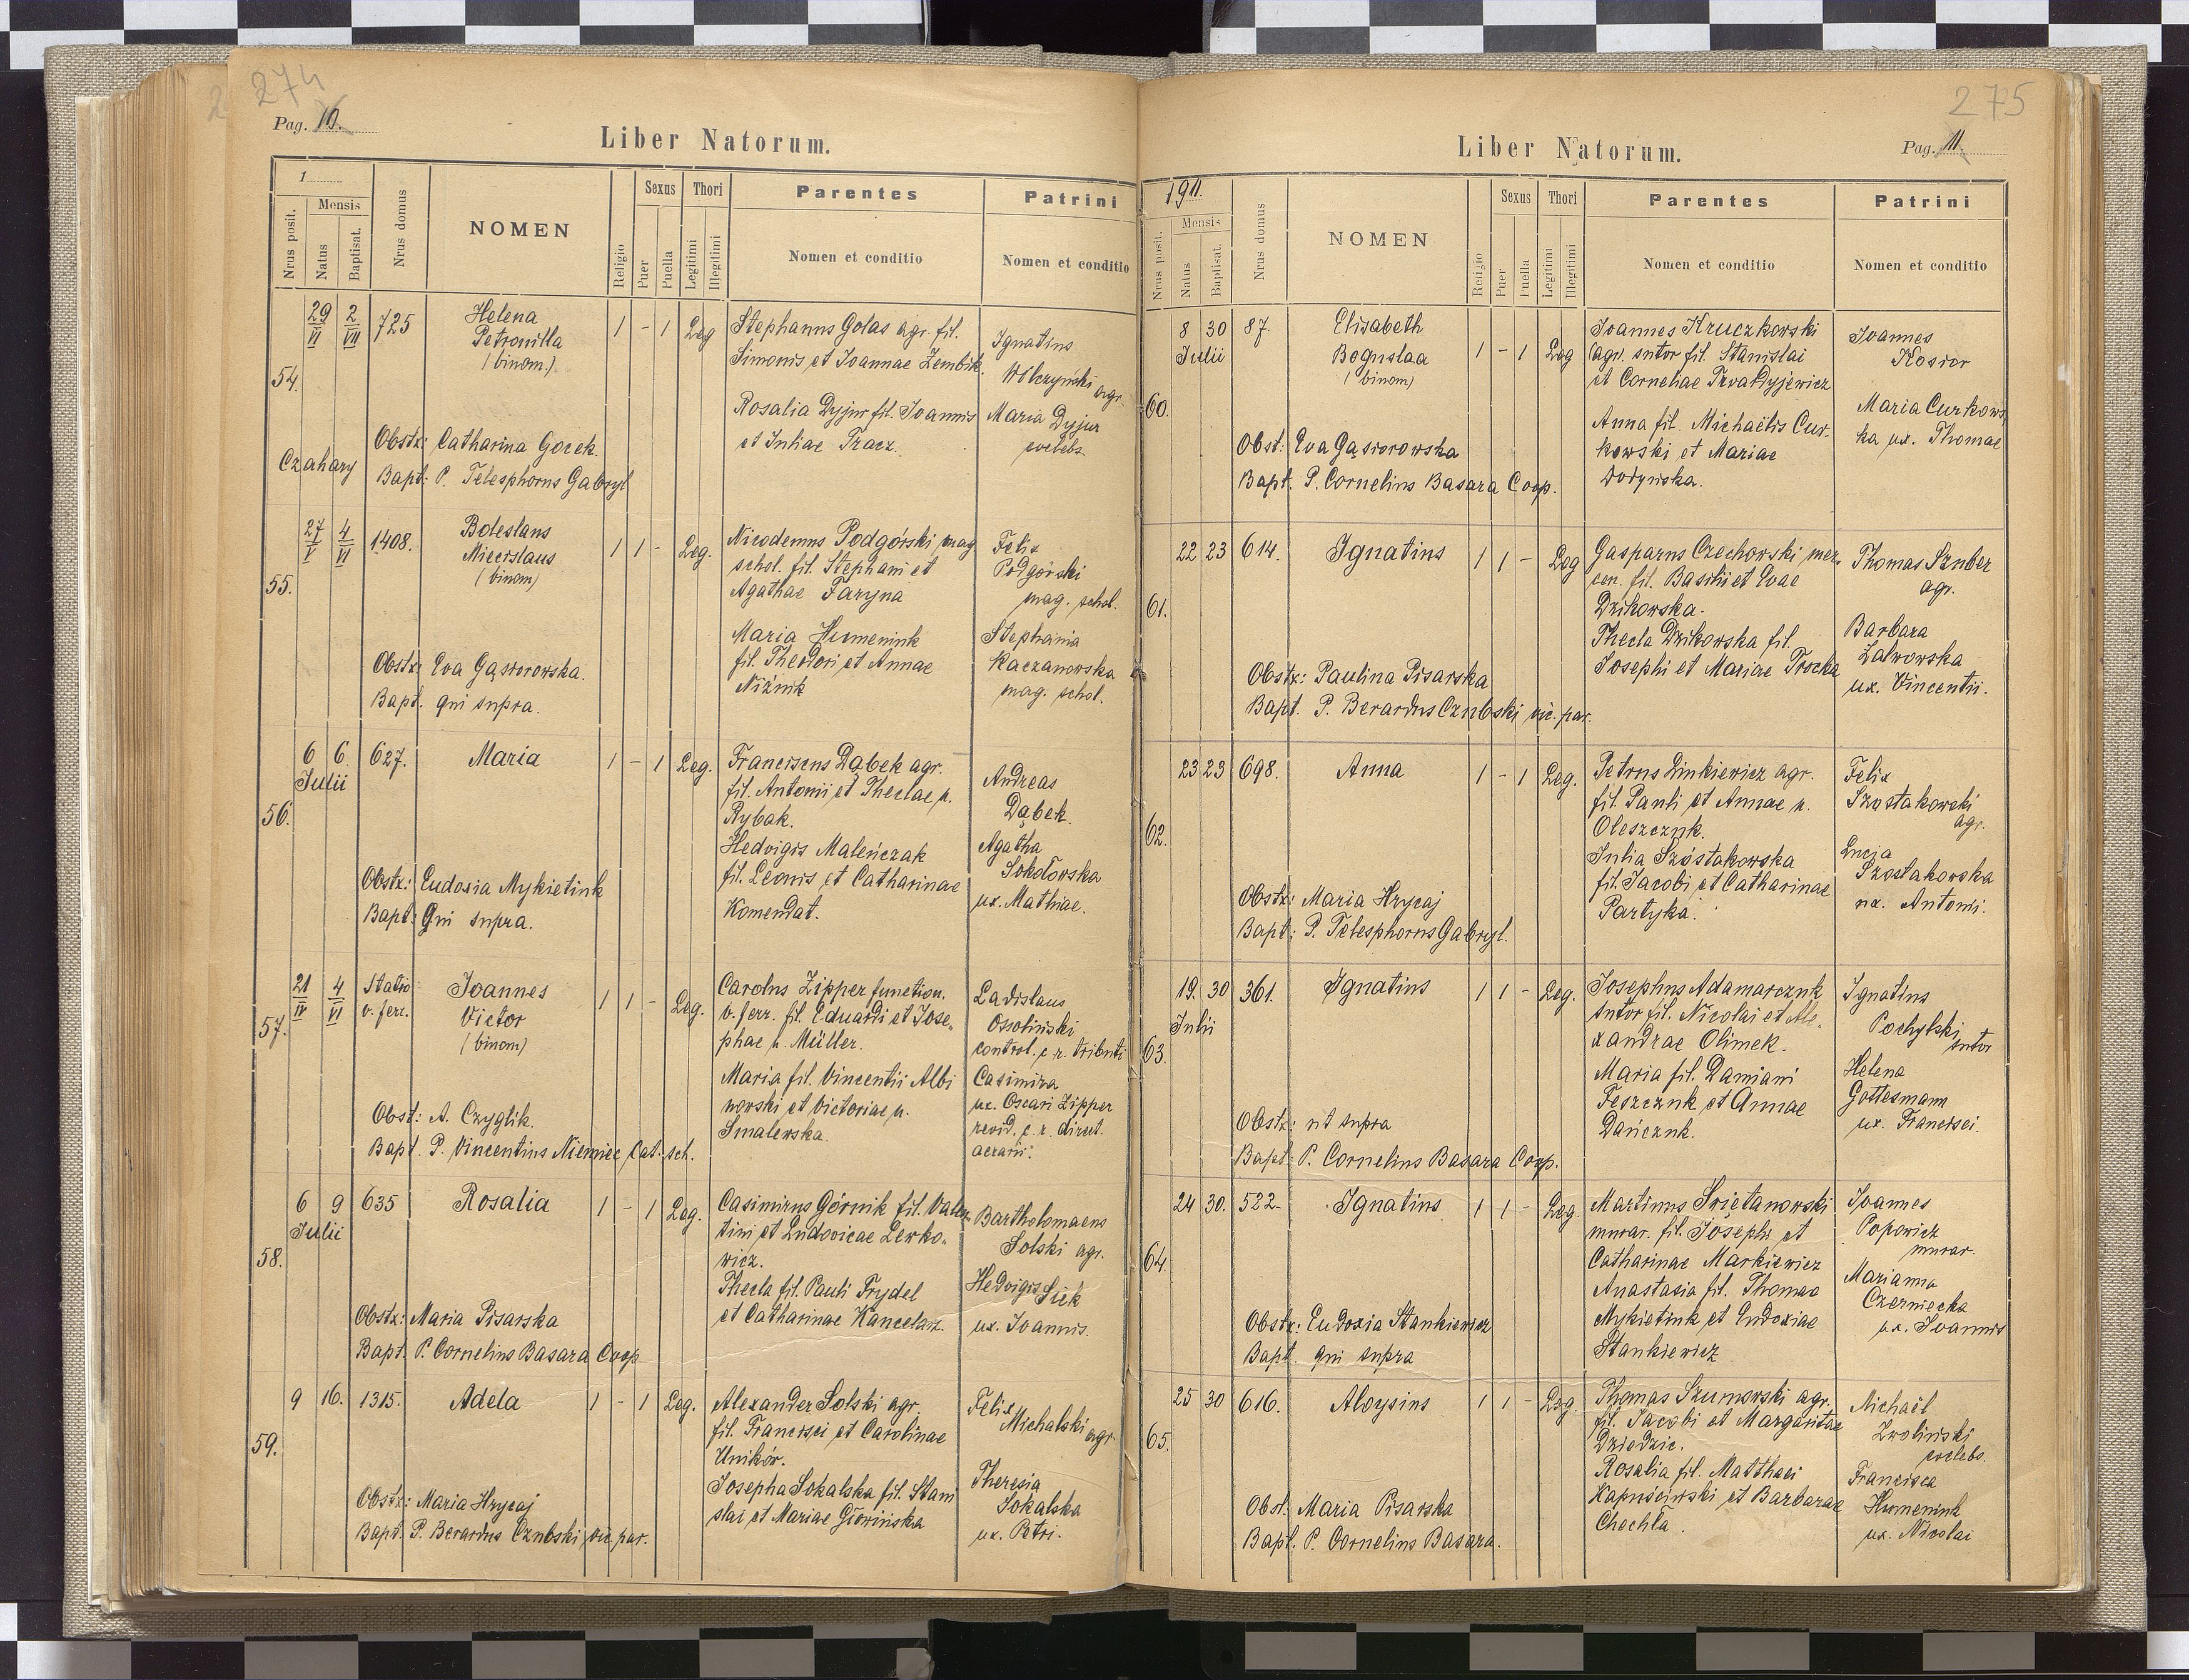 274
Pag. 10.
Liber Natorum.
1
Nrus posit.
Mensis
Natus
Baptisat.
Nrus domus
NOMEN
Religio
Sexus
Puer
Puella
Thori
Legitimi
Illegitimi
Parentes
Nomen et conditio
Patrini
Nomen et conditio
54.
29/VI 2/VII 725 Helena 1 - 1 Leg Stephanus Golas agr. fil. Ignatius
Petronilla Simonis et Joannae Zembik. Wilczyński agr.
(binom.)
Rosalia Dyjur fil. Joannis Maria Dyjur
et Juliae Tracz. coelebs.
Obstx: Catharina Gorek.
Czahary
Bapt: P. Telesphorus Gabryl
55.
27/V 4/VI 1408. Boleslaus 1 1 - Leg. Nicodemus Podgórski mag. Felix
Miecislaus schol. fil. Stephani et Podgórski
(binom) Agathae Faryna mag. schol.
Maria Humeniuk Stephania
fil. Theodori et Annae Kaczanowska
Niźnik mag. schol.
Obstx: Eva Gąsiorowska.
Bapt. qui supra.
56.
6 6 627. Maria 1 - 1 Leg. Franciscus Dąbek agr. Andreas
Julii fil. Antonii et Theclae n. Dąbek.
Rybak.
Hedvigis Maleńczak Agatha
fil. Leonis et Catharinae Sokołowska
Komendat. ux. Mathiae.
Obstx: Eudoxia Mykietiuk
Bapt: Qui supra.
57.
21/IV 4/VI Statio Joannes 1 1 - Leg. Carolus Zipper function. Ladislaus
v. ferr. Victor v. ferr. fil. Eduardi et Jose= Ossoliński
(binom) phae n. Müller. control. c. r. tributi
Maria fil. Vincentii Albi Casimira
nowski et Victoriae n. ux. Oscari Zipper
Smalewska. revid. c. r. direct.
aerarii.
Obst: A. Czyglik.
Bapt. P. Vincentius Niemiec Cat. sch.
58.
6 9 635 Rosalia 1 - 1 Leg. Casimirus Górnik fil. Valen= Bartholomaeus
Julii tini et Ludovicae Lewko= Solski agr.
wicz.
Thecla fil. Pauli Frydel Hedvigis Siek
et Catharinae Kancelarz. ux. Joannis.
Obstx: Maria Pisarska
Bapt. P. Cornelius Basara Coop.
59.
9 16. 1315. Adela 1 - 1 Leg. Alexander Solski agr. Felix
fil. Francisci et Carolinae Michalski agr.
Unikór.
Josepha Sokalska fil. Stani Theresia
slai et Mariae Glowińska Sokalska
ux. Petri.
Obstx: Maria Hrycaj
Bapt. P. Berardus Czubski vic. par.
275
Liber Natorum.
Pag. 11.
1911.
Nrus posit.
Mensis
Natus
Baptisat.
Nrus domus
NOMEN
Religio
Sexus
Puer
Puella
Thori
Legitimi
Illegitimi
Parentes
Nomen et conditio
Patrini
Nomen et conditio
60.
8 30 87 Elisabeth 1 - 1 Leg Joannes Kruczkowski Joannes
Julii Boguslaa agr. sutor fil. Stanislai Kosior
(binom) et Corneliae
Anna fil. Michaëlis Cur- Maria Curkows
kowski et Mariae ka ux. Thomae
Dodyńska.
Obst: Eva Gąsiorowska
Bapt. P. Cornelius Basara Coop.
61.
22 23 614. Ignatius 1 1 - Leg Gasparus Czechowski mer= Thomas Szuber
cen. fil. Basilii et Evae agr.
Dzikowska.
Thecla Dzikowska fil. Barbara
Josephi et Mariae Trocka Zalwowska
ux. Vincentii.
Obstx: Paulina Pisarska
Bapt. P. Berardus Czubski vic. par.
62.
23 23 698. Anna 1 - 1 Leg. Petrus Linkiewicz agr. Felix
fil. Pauli et Annae n. Szostakowski
Oleszczuk. agr.
Julia Szóstakowska Lucia
fil. Jacobi et Catharinae Szostakowska
Partyka. ux. Antonii.
Obstx: Maria Hrycaj
Bapt: P. Telesphorus Gabryl.
63.
19. 30 361. Ignatius 1 1 - Leg. Josephus Adamarczuk Ignatius
Julii sutor fil. Nicolai et Ale= Pochylski
xandrae Olimek. sutor
Maria fil. Damiani Helena
Feszczuk et Annae Gottesmann
Dańczuk. ux. Francisci.
Obstx: ut supra
Bapt: P. Cornelius Basara Coop.
64.
24 30. 522. Ignatius 1 1 - Leg. Martinus Świętanowski Joannes
murar. fil. Josephi et Popowicz
Catharinae Markiewicz murar.
Anastasia fil. Thomae Marianna
Mykietiuk et Eudoxiae Czerniecka
Stankiewicz ux. Joannis
Obstx: Eudoxia Stankiewicz
Bapt. qui supra
65.
25 30 616. Aloysius 1 1 - Leg. Thomas Szumowski agr. Michaël
fil. Jacobi et Margaritae Zwoliński
Dziedzic. coelebs.
Rosalia fil. Matthaei Francisca
Kapuściński et Barbarae Humeniuk
Chechla. ux. Nicolai
Obst. Maria Pisarska
Bapt. P. Cornelius Basara.